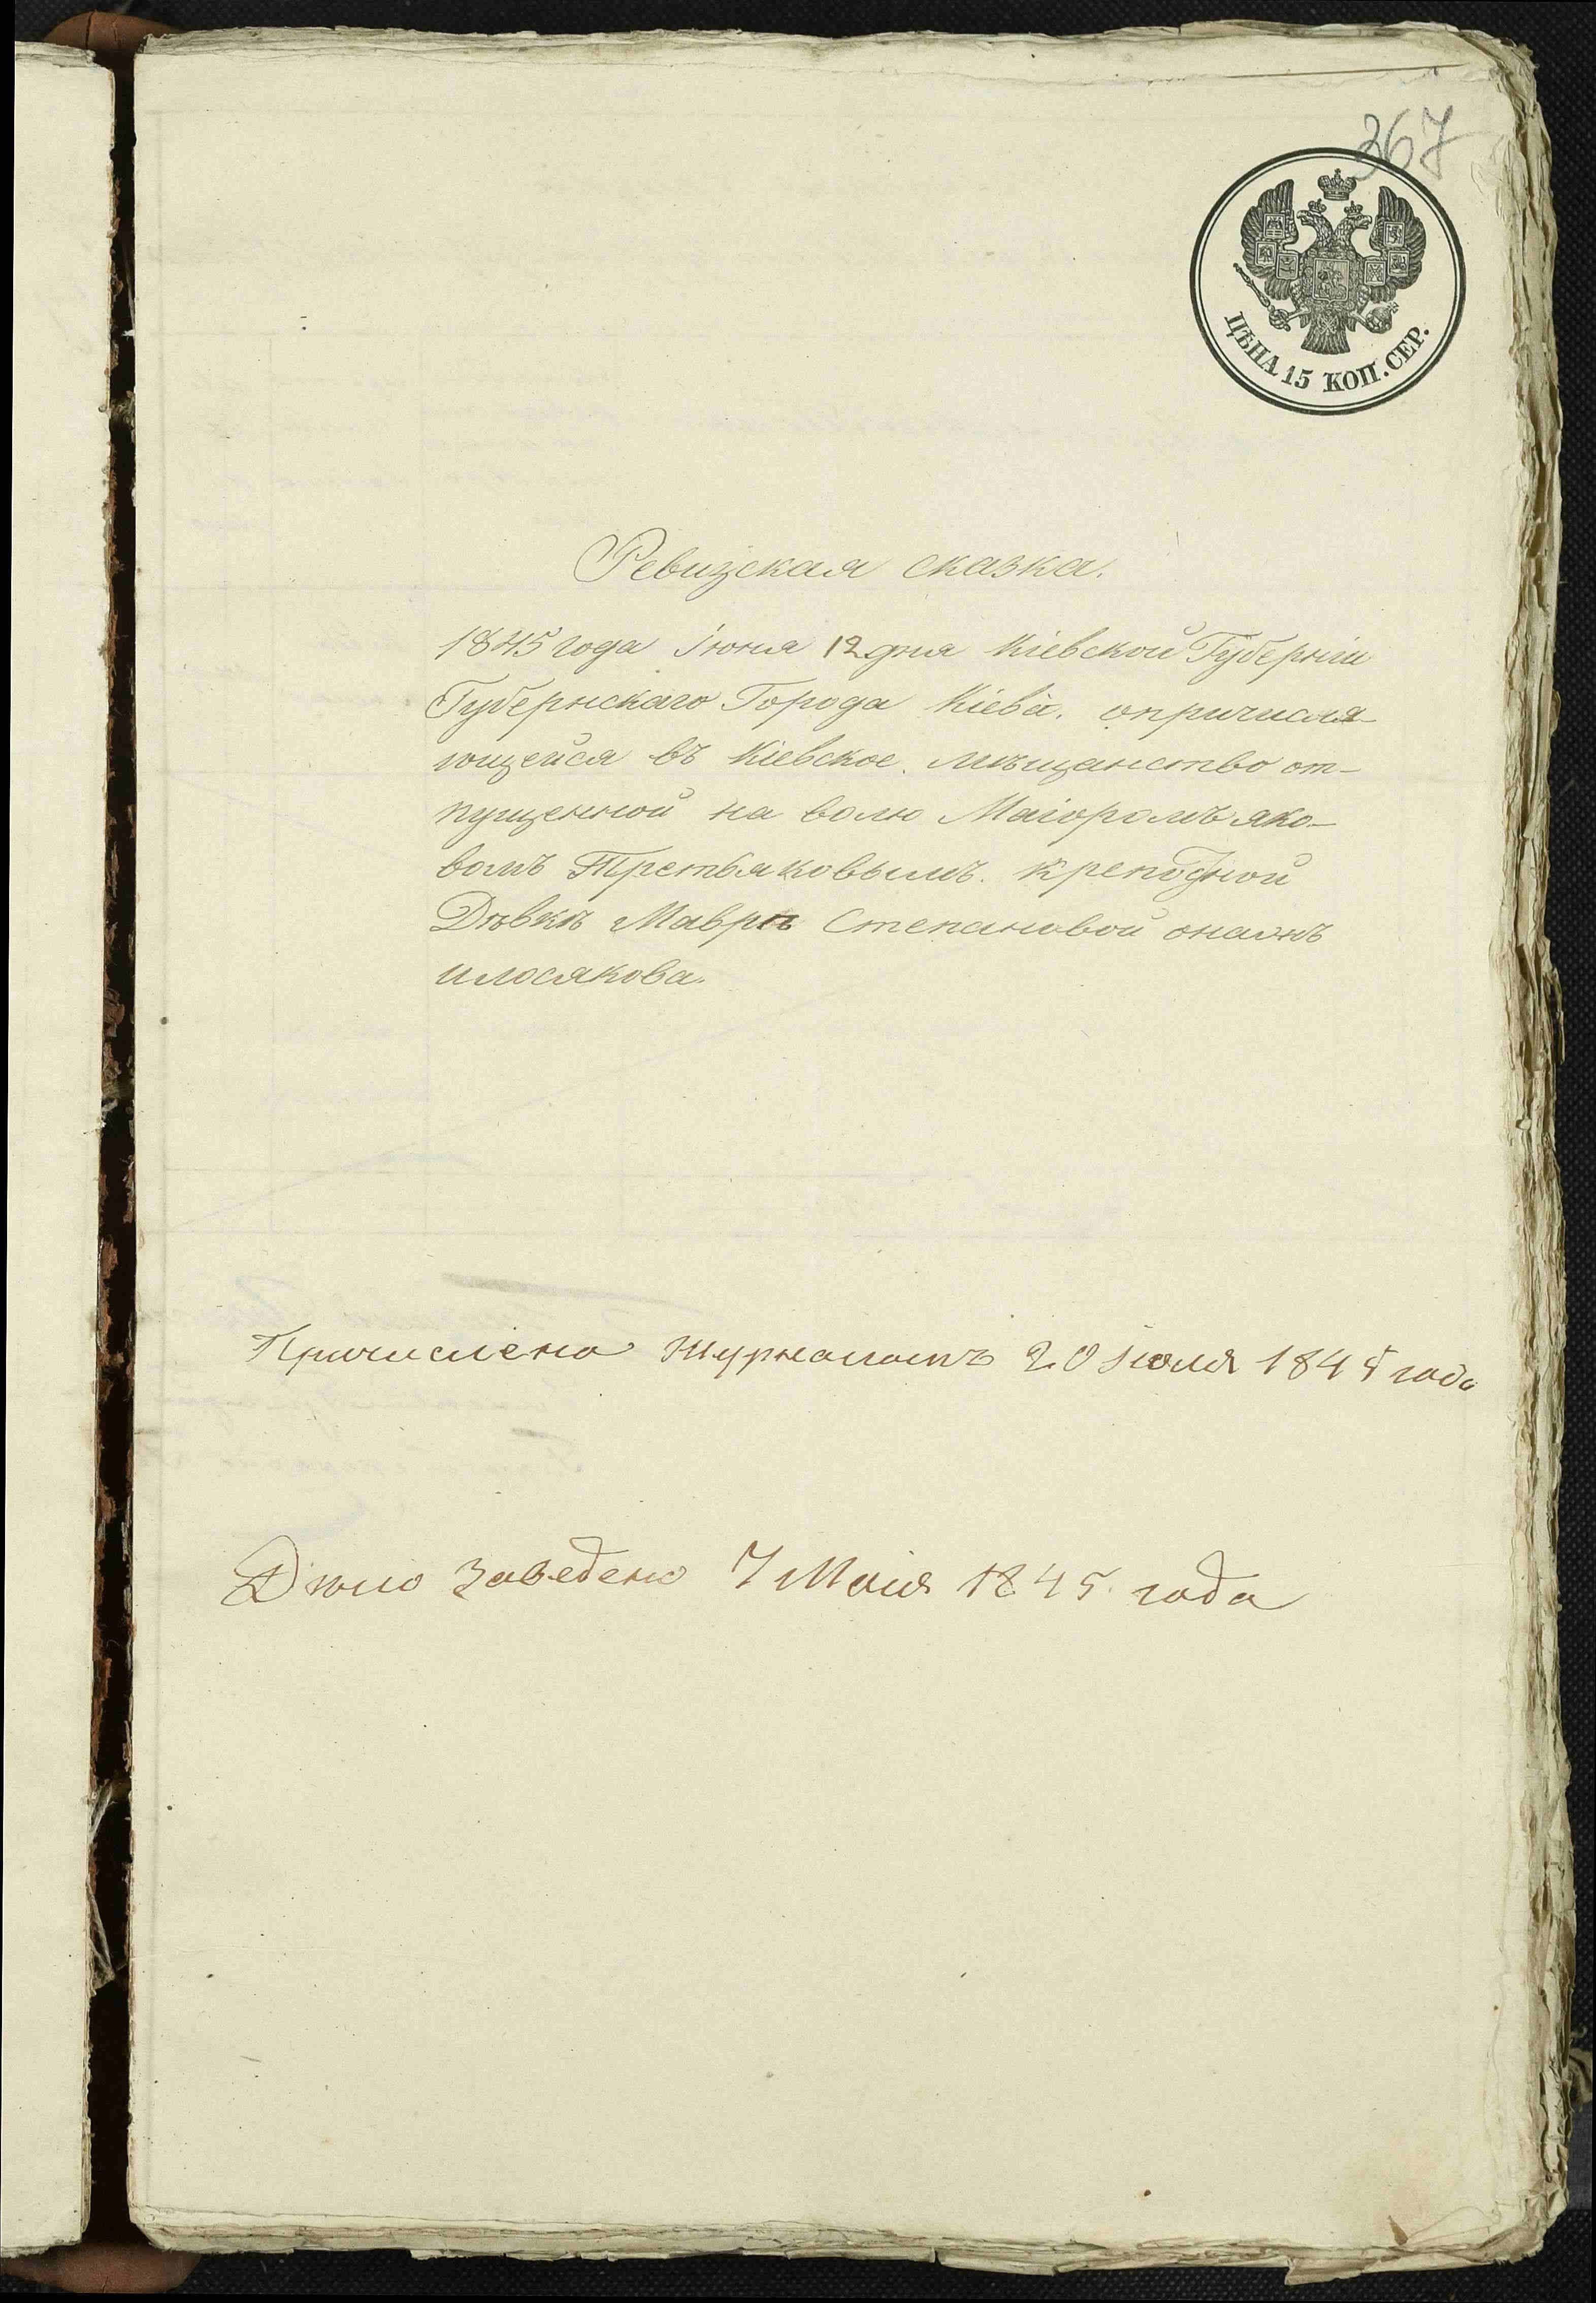 367
ЦѢНА 15 КОП. СЕР.
Ревизская сказка.
1845 года Iюня 12 дня Кiевской Губернiи
Губернскаго Города Кiева. опричисля-
ющейся въ Кiевское. мѣщанство от-
пущенной на волю Маiоромъ яко-
вомъ Третьяковымъ. крепосной
Дѣвкѣ Маврѣ Степановой
Причислена Журналомъ 20 Iюля 1845 года
Дѣло Заведено 7 Маiя 1845 года